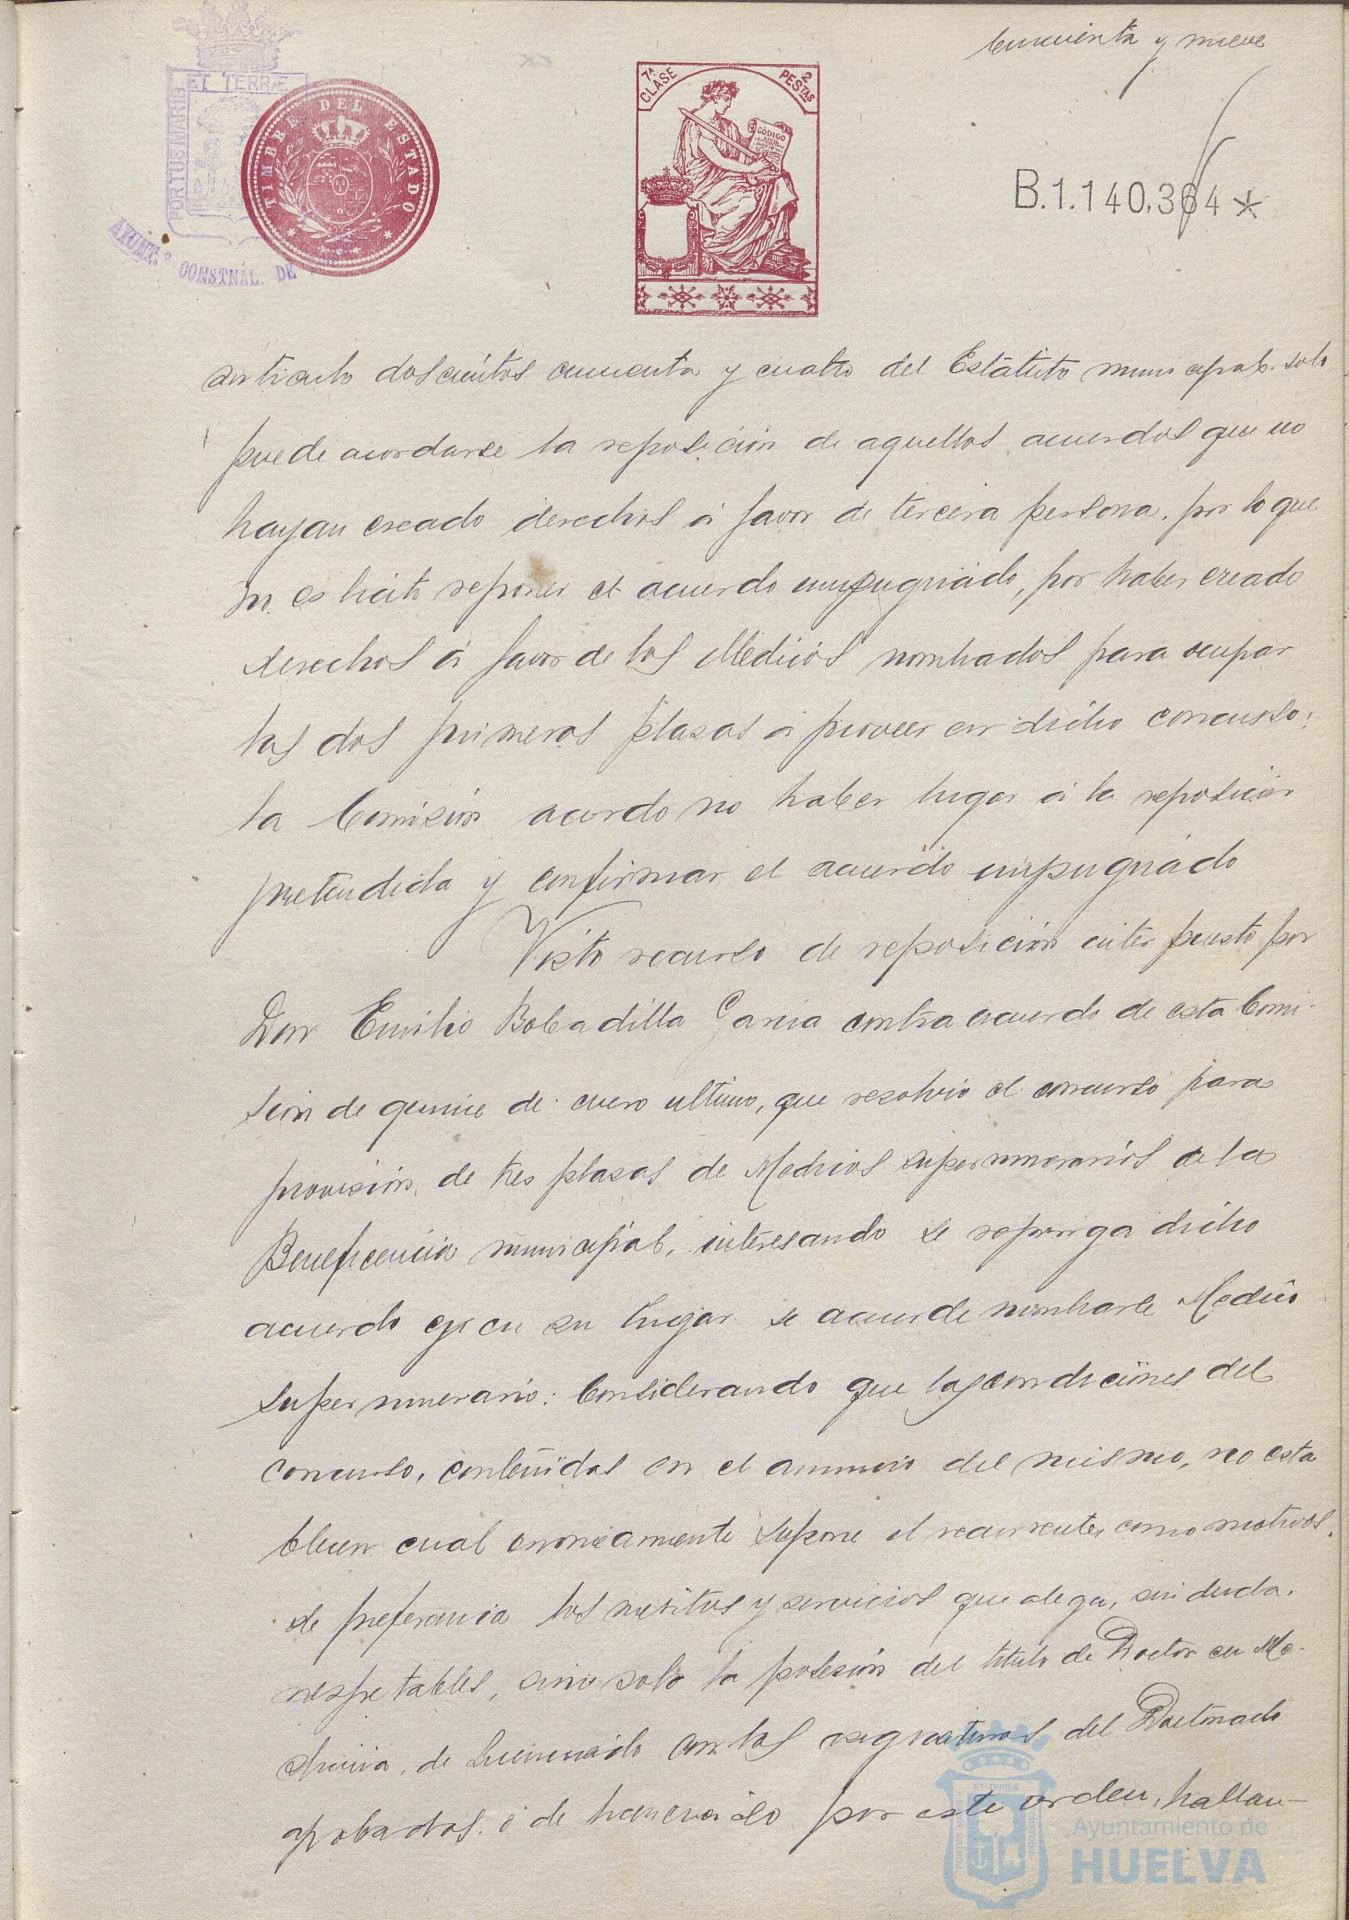 cincuenta y nueve
PORTUS MARIS
ET TERRÆ
AYUNT.º CONSTNÁL. DE
TIMBRE DEL ESTADO
7ª CLASE
2 PESTAS
CÓDIGO
B.1.140.364*
articulo doscientos cincuenta y cuatro del Estatuto municipal. solo
puede acordarse la reposición de aquellos acuerdos que no
hayan creado derechos á favor de tercera persona. por lo que
no es licito reponer el acuerdo impugnado, por haber creado
derechos á favor de los Medicos nombrados para ocupar
las dos primeras plazas á proveer en dicho concurso:
la Comisión acordo no haber lugar á la reposición
pretendida y confirmar el acuerdo impugnado
Visto recurso de reposición interpuesto por
Don Emilio Bobadilla Garcia contra acuerdo de esta Comi-
sion de quince de enero ultimo, que resolvio el concurso para
provisión de tres plazas de Medicos supernumerarios de la
Beneficencia municipal, interesando se reponga dicho
acuerdo y en su lugar se acuerde nombrarle Medico
supernumerario: Considerando que las condiciones del
concurso, contenidas en el anuncio del mismo, no esta
blecen cual erroneamente supone el recurrente como motivos
de preferencia los meritos y servicios que alega, sin duda
respetables, sino solo la posesión del titulo de Doctor en Me-
dicina, de Licenciado con las asignaturas del Doctorado
aprobadas ó de Licenciado por este orden, hallan-
PORTUS MARIS
ET TERRÆ
Ayuntamiento de
HUELVA